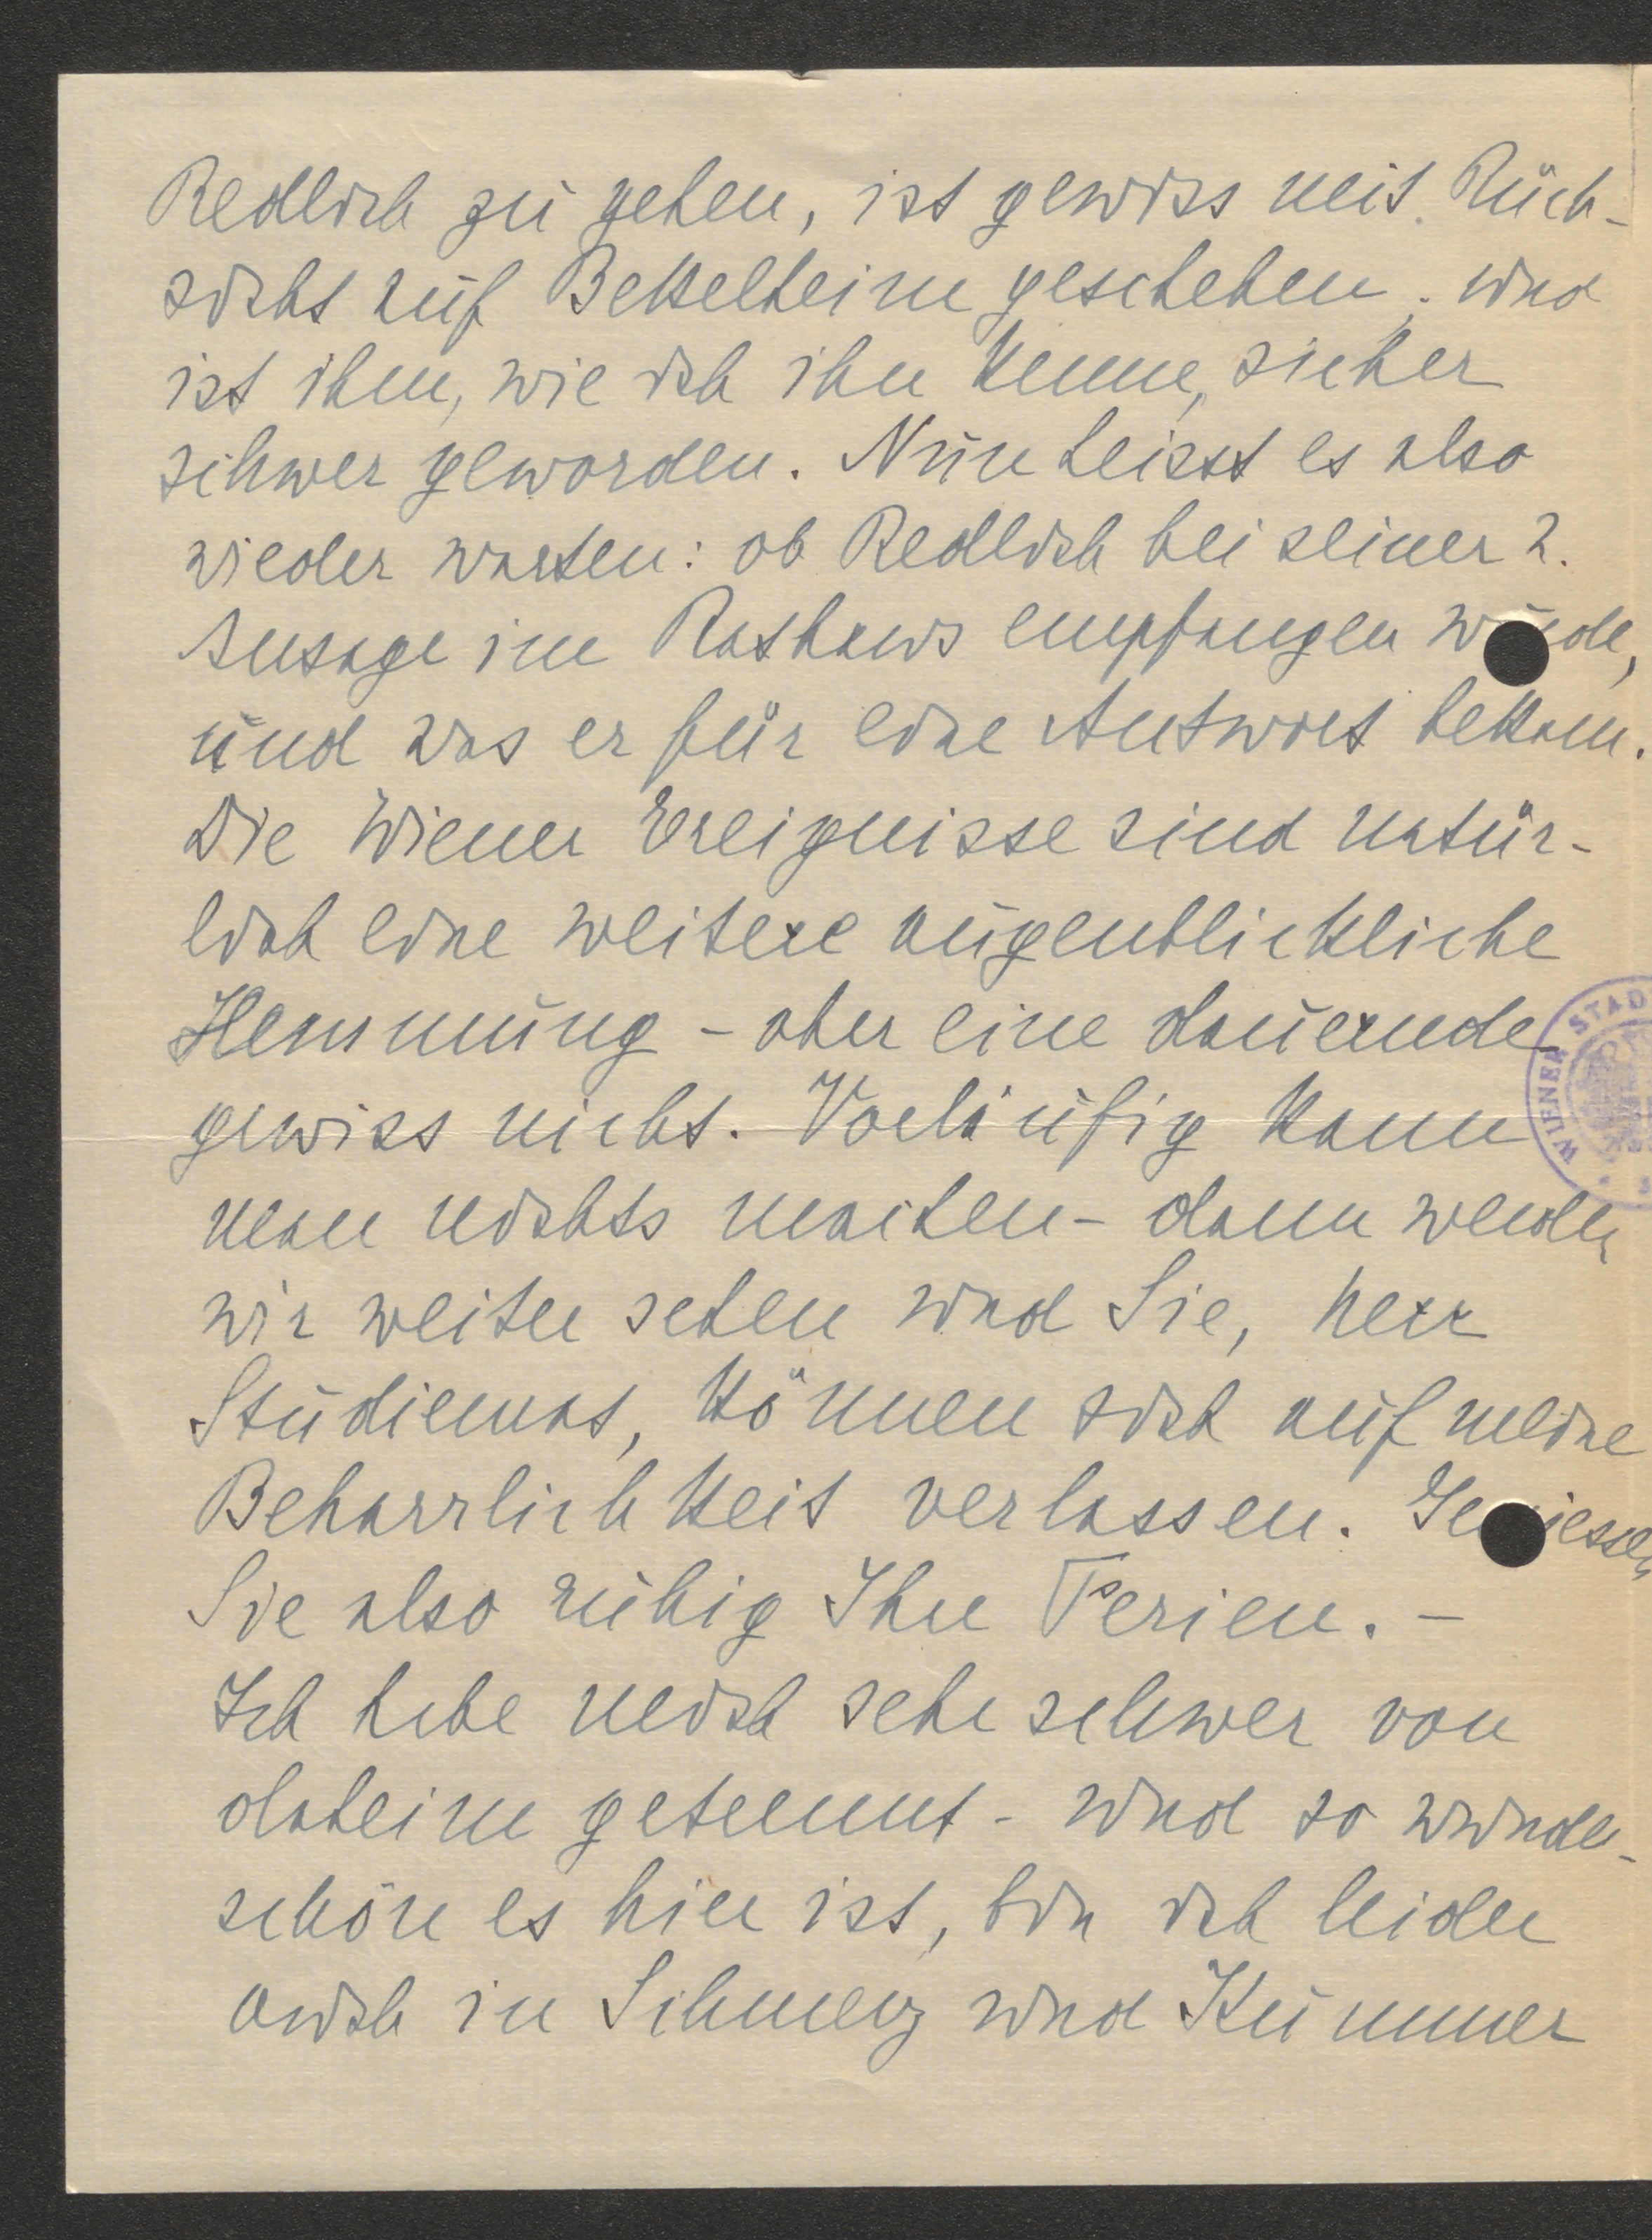 Redlich zu gehen, ist gewiss mit Rück-
sicht auf Bettelheim geschehen und
ist ihm, wie ich ihn kenne, sicher
schwer geworden. Nun heisst es also
wieder warten: ob Redlich bei seiner 2.
Ansage im Rathaus empfangen wurde,
und was er für eine Antwort bekam.
Die Wiener Ereignisse sind natür-
lich eine weitere augenblickliche
Hemmung - aber eine dauernde
gewiss nicht. Vorläufig kann
man nichts machen - dann werden
wir weiter sehen und Sie, Herr
Studienrat, können sich auf meine
Beharrlichkeit verlassen. Geniessen
Sie also ruhig Ihre Ferien. -
Ich habe mich sehr schwer von
daheim getrennt - und so wunder-
schön es hier ist, bin ich leider
auch in Schmerz und Kummer
WIENER STAD